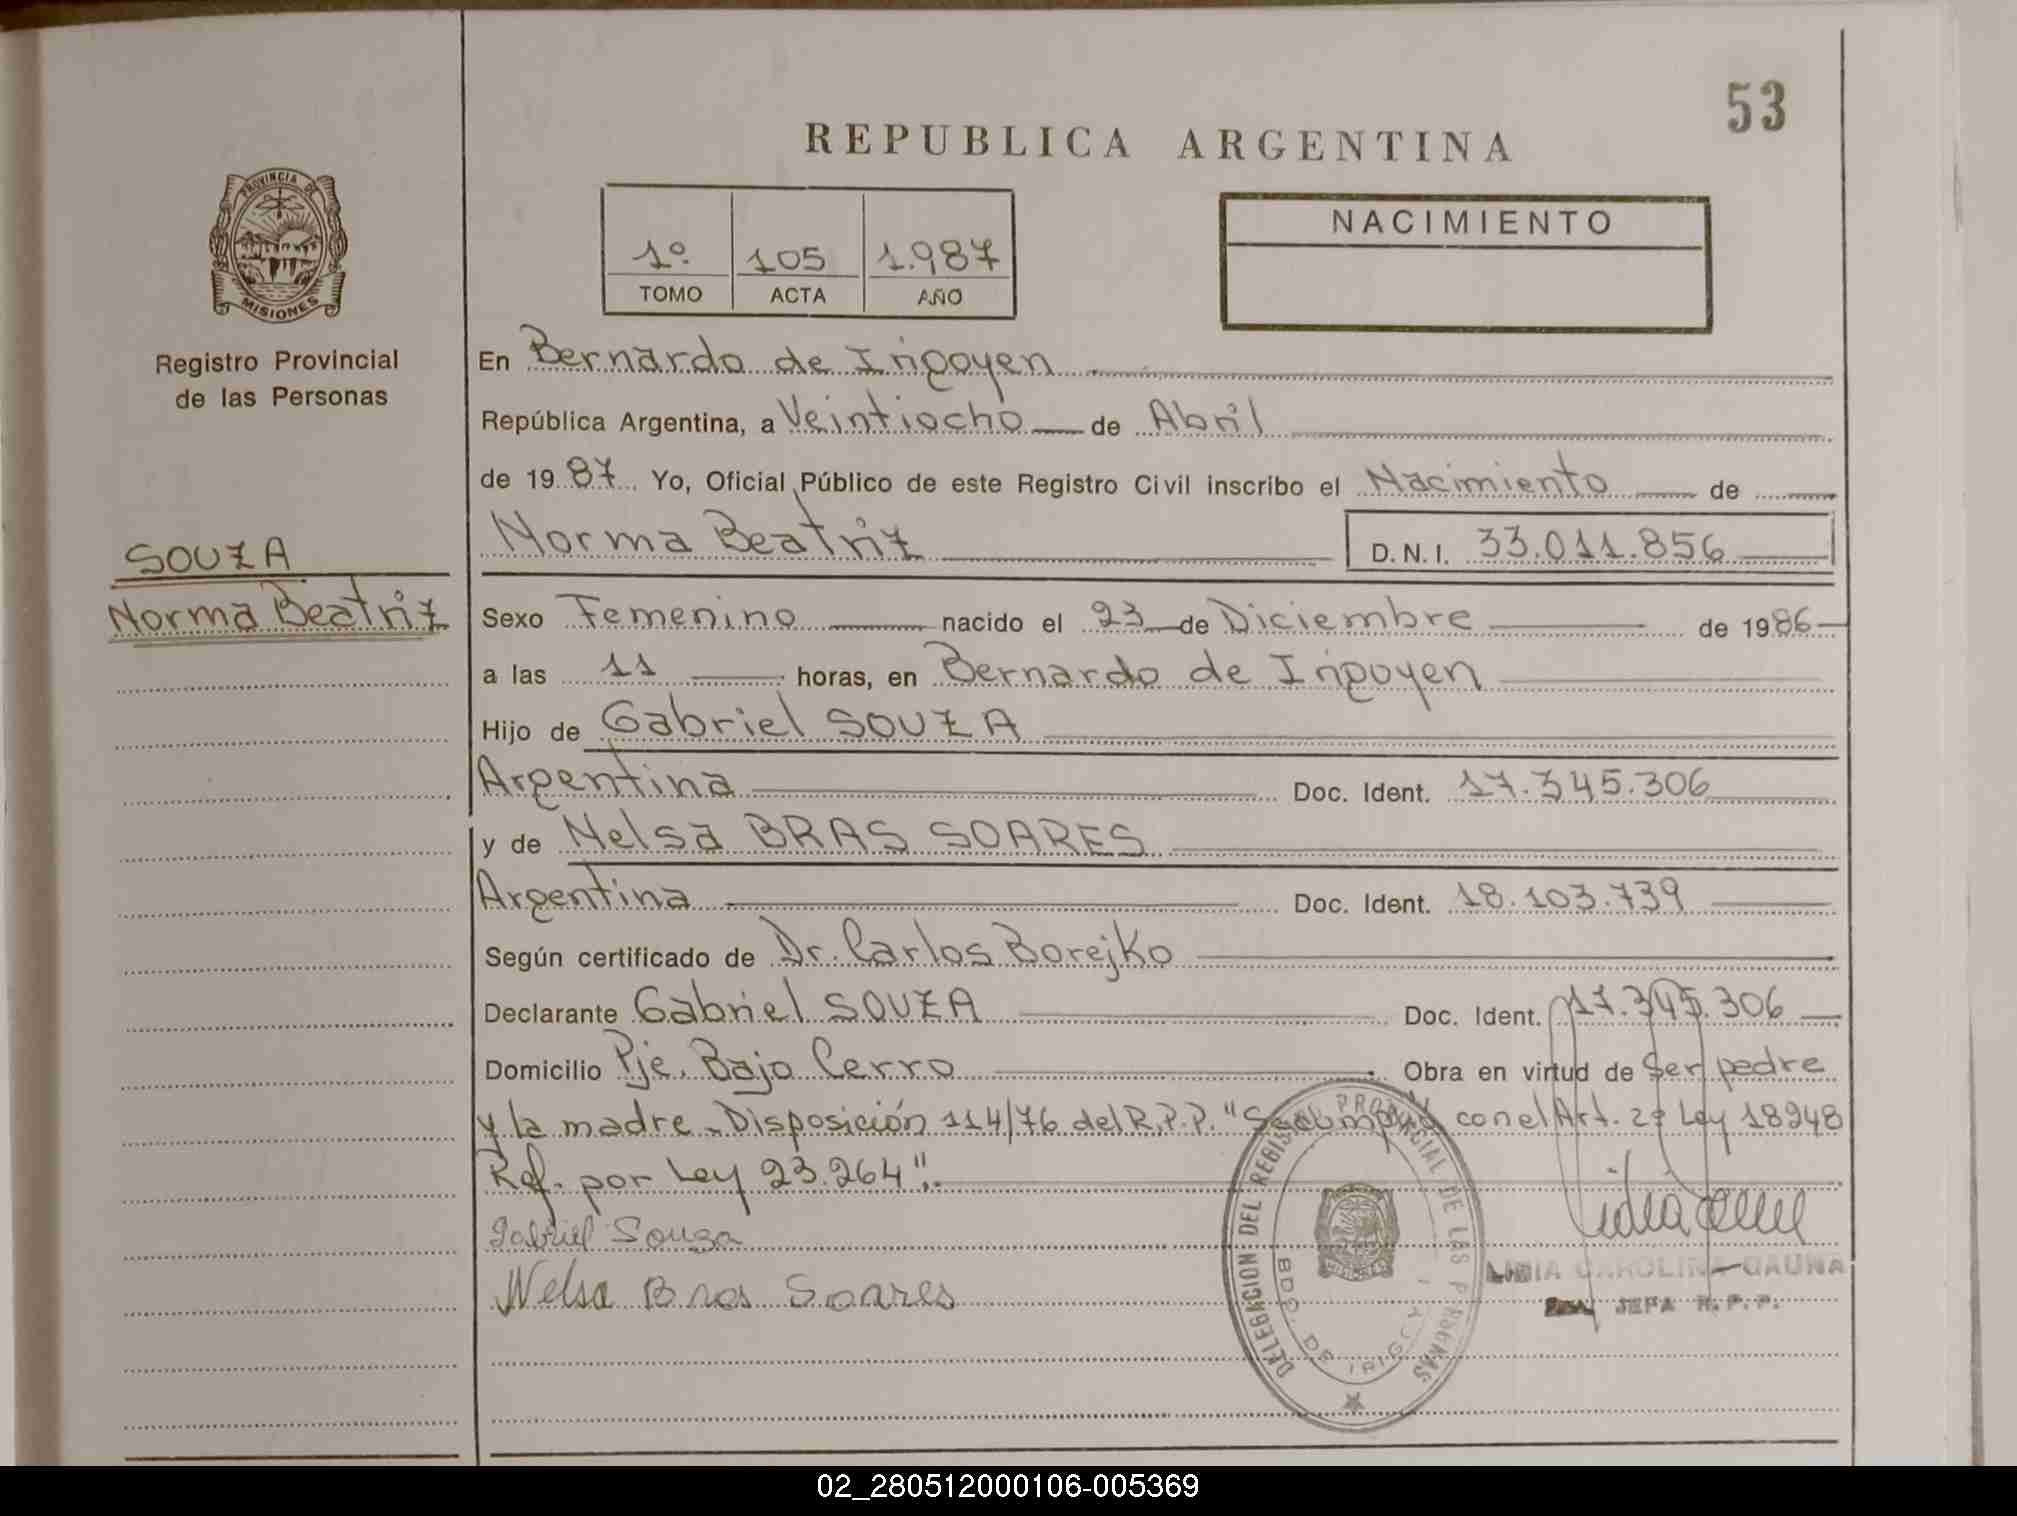 53
REPUBLICA ARGENTINA
PROVINCIA DE
MISIONES
Registro Provincial
de las Personas
1º. 105 1.987
TOMO ACTA AÑO
NACIMIENTO
En Bernardo de Irigoyen
República Argentina, a Veintiocho de Abril
de 1987 Yo, Oficial Público de este Registro Civil inscribo el Nacimiento de
Norma Beatriz D.N.I. 33.011.856
SOUZA
Norma Beatriz
Sexo Femenino nacido el 23 de Diciembre de 1986
a las 11 horas, en Bernardo de Irigoyen
Hijo de Gabriel SOUZA
Argentina Doc. Ident. 17.345.306
y de Nelsa BRAS SOARES
Argentina Doc. Ident. 18.103.739
Según certificado de Dr. Carlos Borejko
Declarante Gabriel SOUZA Doc. Ident. 17.345.306
Domicilio Pje. Bajo Cerro Obra en virtud de Ser padre
y la madre - Disposición 114/76 del R.P.P. "Se cumplió con el Art. 2º Ley 18248
Ref. por Ley 23.264".-
Gabriel Souza
Nelsa Bras Soares
DELEGACION DEL REGISTRO PROVINCIAL DE LAS PERSONAS
BDO. DE IRIGOYEN
LIDIA CAROLINA GAUNA
JEFA R.P.P.
02_280512000106-005369